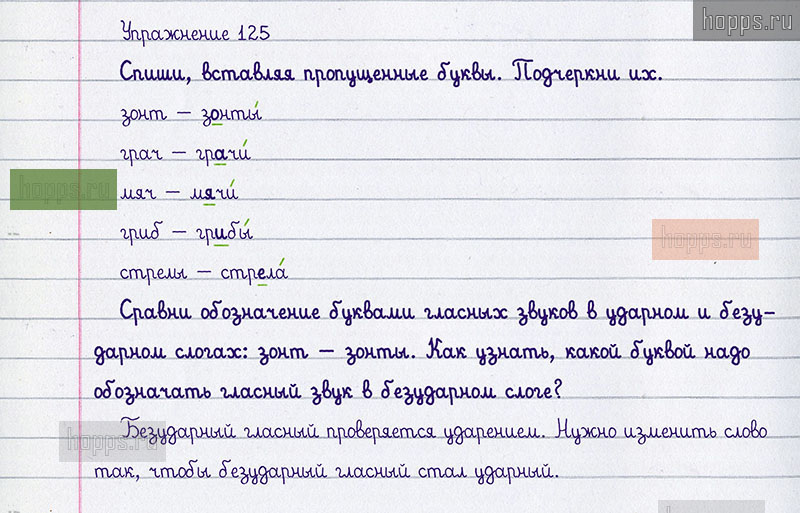 hopps.ru
Упражнение 125
Спиши, вставляя пропущенные буквы. Подчеркни их.
зонт — зонты́
грач — грачи́
hopps.ru
мяч — мячи́
гриб — грибы́
hopps.ru
стрелы — стрела́
Сравни обозначение буквами гласных звуков в ударном и безу-
дарном слогах: зонт — зонты. Как узнать, какой буквой надо
обозначать гласный звук в безударном слоге?
hopps.ru
Безударный гласный проверяется ударением. Нужно изменить слово
так, чтобы безударный гласный стал ударный.